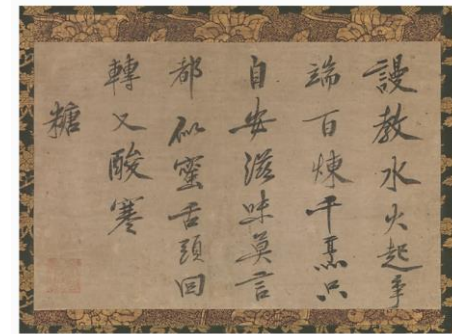 謾教水火起争
端百煉千熏只
自安滋味莫言
都似蜜舌頭回
轉又酸寒
糖